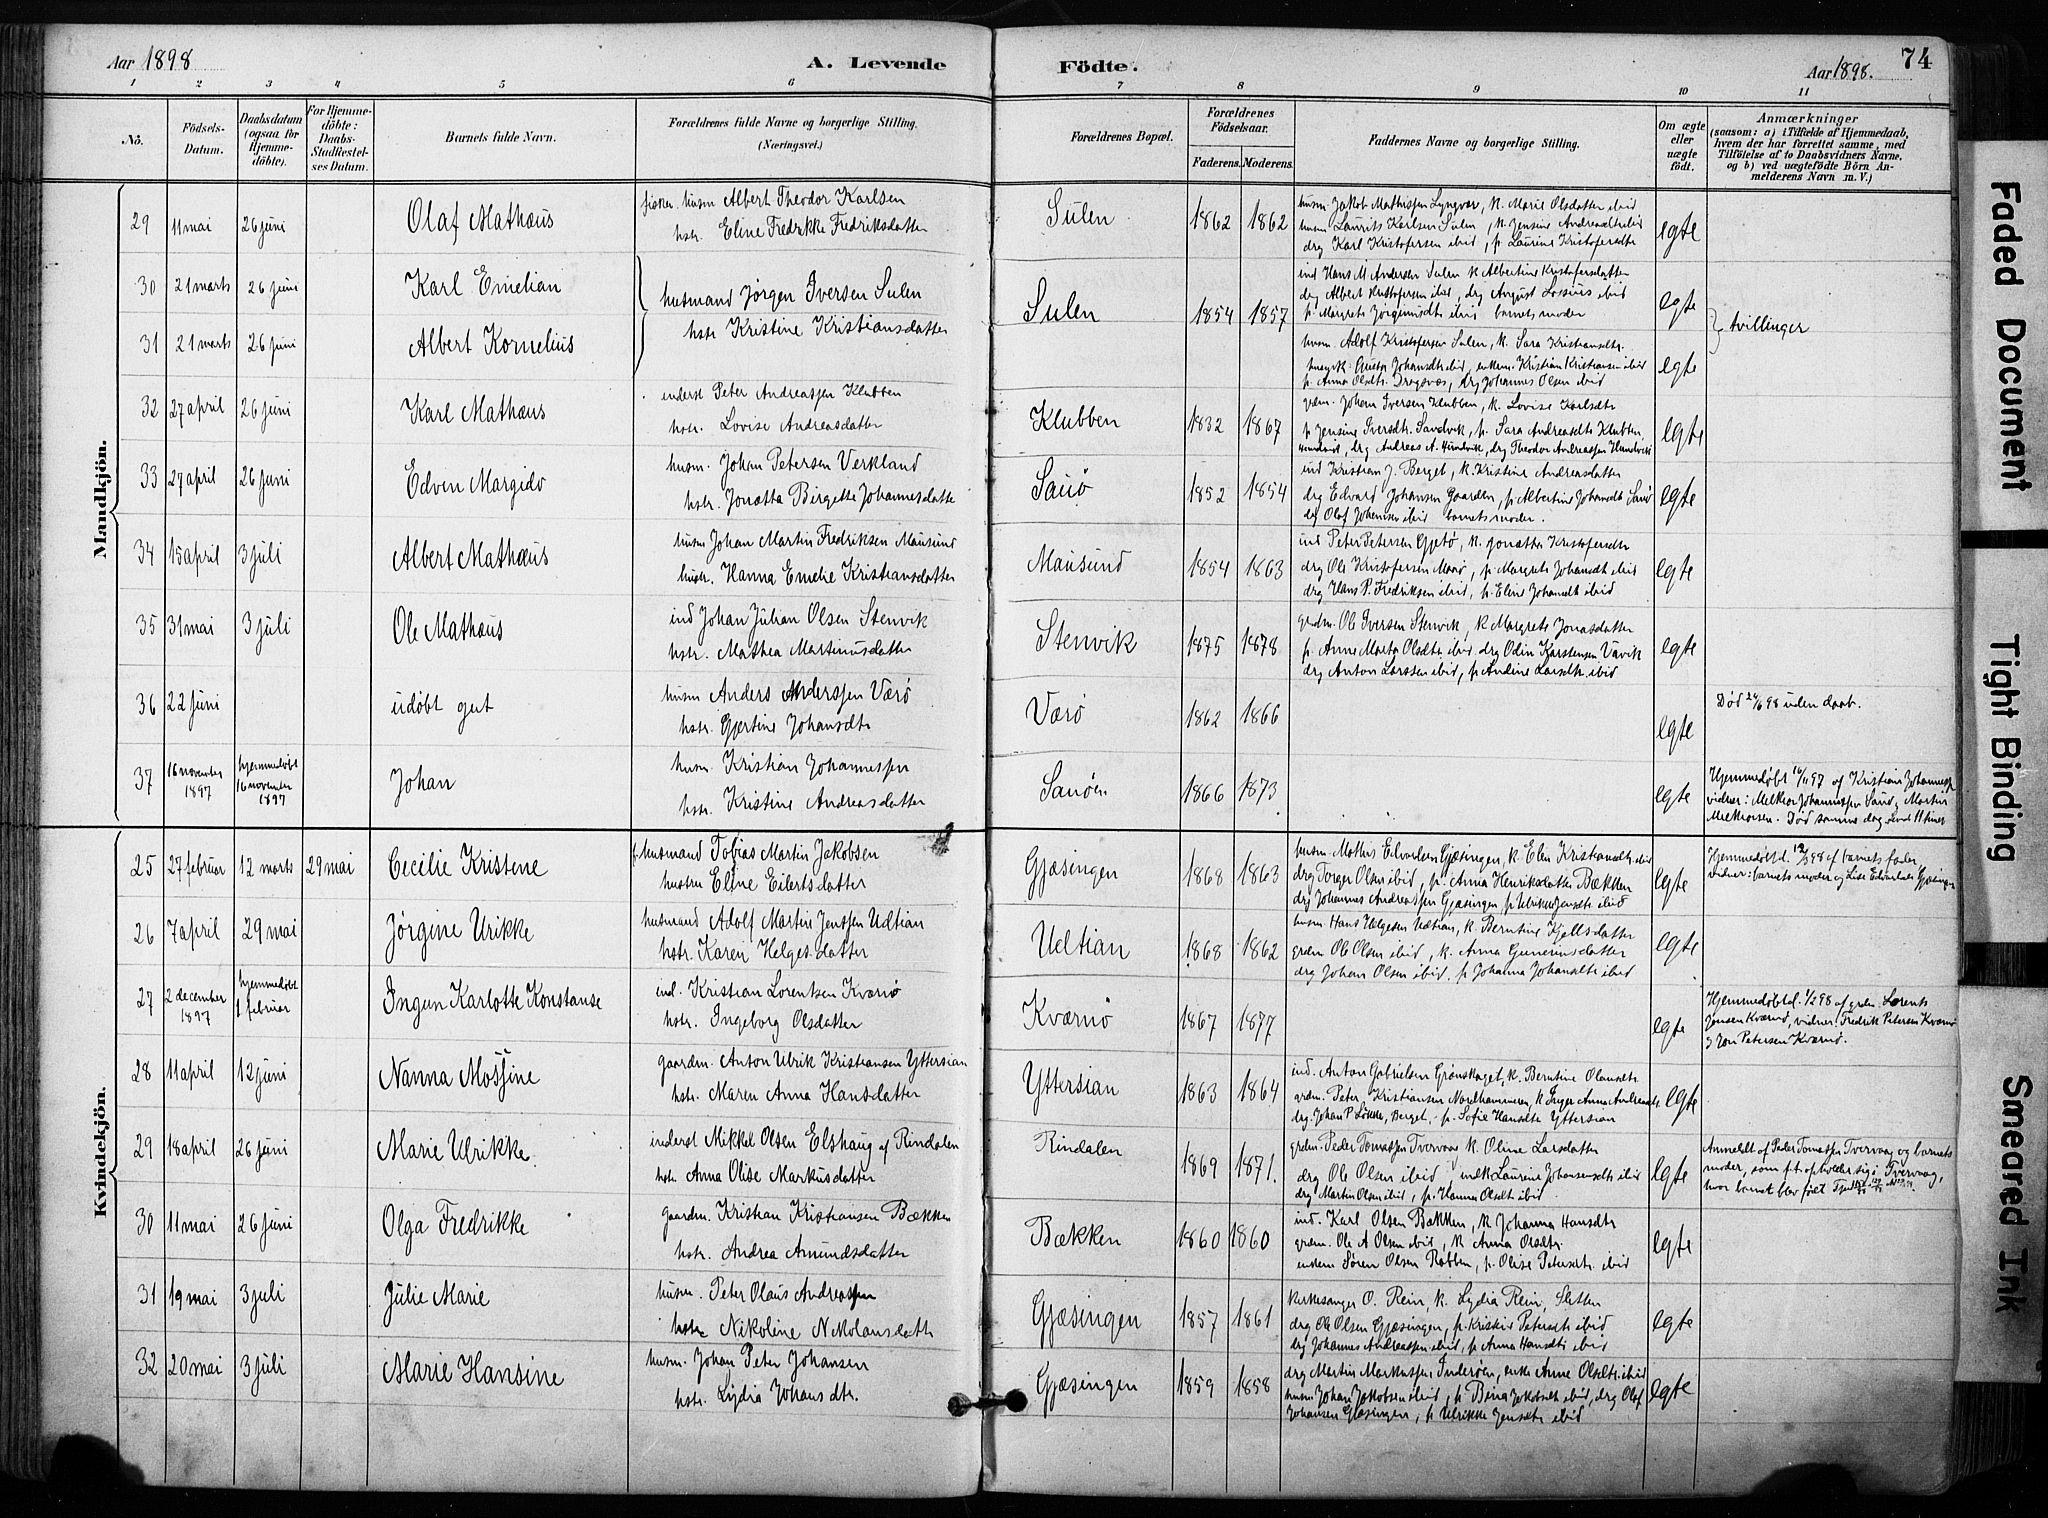 Aar 1898
A. Levende
Födte.
Aar 1898.
74
1 2 3 4 5 6 7 8 9 10 11
No.
Födsels-
Datum.
Daabsdatum
(ogsaa for
Hjemme-
döbte).
For Hjemme-
döbte:
Daabs-
Stadfæstel-
ses Datum.
Barnets fulde Navn.
Forældrenes fulde Navne og borgerlige Stilling.
(Næringsvei.)
Forældrenes Bopæl.
Forældrenes
Födselsaar.
Faderens. Moderens.
Faddernes Navne og borgerlige Stilling.
Om ægte
eller
uægte
födt.
Anmærkninger
(saasom: a) i Tilfælde af Hjemmedaab,
hvem der har forrettet samme, med
Tilföielse af to Daabsvidners Navne,
og b) ved uægtefödte Börn An-
melderens Navn m. V.)
Mandkjön.
29 11 mai 26 juni Olaf Mathæus
fisker. husm Albert Theodor Karlsen
hstr. Eline Fredrikke Fredriksdatter
Sulen 1862 1862
husm Jakob Mathissen Lyngvær, k. Marie Olsdatter ibid
husm Laurits Karlsen Sulen, k. Jensine Andreasdtr ibid
drg Karl Kristofersen ibid, p. Laurine Kristofersdtr
egte
30 21 marts 26 juni Karl Emelian
husmand Jørgen Iversen Sulen
hstr Kristine Kristiansdatter
Sulen 1854 1857
ind Hans M Andersen Sulen k Albertine Kristofersdatter
drg Albert Kristofersen ibid, drg August Lossius ibid
p. Margrete Jørgensdtr ibid barnets moder
egte
tvillinger
31 21 marts 26 juni Albert Kornelius
husm. Adolf Kristofersen Sulen, k. Sara Kristiansdtr.
p. Anna Olsdtr. Dragsnæs, drg Johannes Olsen ibid
egte
32 27 april 26 juni Karl Mathæus
inderst Peter Andreassen Klubben
hstr. Lovise Andreasdatter
Klubben 1832 1867
grdm. Johan Iversen Klubben, k. Lovise Karlsdtr
p Jensine Iversdtr. Sandvik, p. Sara Andreasdtr Klubben
egte
33 27 april 26 juni Edvin Margido
husm. Johan Petersen Verkland
hstr. Jonetta Birgitte Johannesdatter
Sanø 1852 1854
ind Kristian J. Berget, k. Kristine Andreasdatter
drg Edvard Johansen Gaarden, p. Albertine Johansdtr Sanø
drg Olaf Johansen ibid barnets moder.
egte
34 15 april 3 juli Albert Mathæus
husm Johan Martin Fredriksen Mausund
hustr. Hanna Emelie Kristiansdatter
Mausund 1854 1863
ind Peter Petersen Gjetø, k. Jonetta Kristofersdtr
drg Ole Kristofersen Maaø, p. Margrete Johansdtr ibid
drg Hans P. Fredriksen ibid, p. Eline Johansdt ibid
egte
35 31 mai 3 juli Ole Mathæus
ind Johan Julian Olsen Stenvik
hstr. Mathea Martinusdatter
Stenvik 1875 1878
grdm. Ole Iversen Stenvik, k Margrete Jonasdatter
p. Anne Marta Olsdtr ibid. drg Odin Karstensen Vavik
drg Anton Larssen ibid, p Andine Larsdtr ibid
egte
36 22 juni udøbt gut
husm Anders Anderssen Værø
hstr. Gjertine Johansdtr
Værø 1862 1866
egte
Død 24/6 98 uden daab.
37 16 november 1897 hjemmedøbt 16 november 1897 Johan
husm. Kristian Johannessen
hstr. Kristine Andreasdatter
Sanøen 1866 1873
egte
Hjemmedøbt 16/11 97 af Kristian Johannessen
vidner: Melkior Johannessen Sanø og Martin
Melkiorsen. Død samme dag
Kvindekjön.
25 27 februar 12 marts 29 mai Cecilie Kristene
husmand Tobias Martin Jakobsen
hustru Eline Eilertsdatter
Gjæsingen 1868 1863
husm. Mathis Edvardsen Gjæsingen, k. Elen Kristiansdtr ibid
drg Torger Olsen ibid, p. Anna Henriksdatter Bækken
drg Johannes Andreassen Gjæsingen, p. Ulrikke Jensdtr ibid
egte
Hjemmedøbt d. 12/3 98 af barnets fader
vidner: barnets moder og Lise Edvardsdtr Gjæsingen
26 7 april 29 mai Jørgine Urikke
husmand Adolf Martin Jenssen Udtian
hstr. Karen Helgesdatter
Udtian 1868 1862
husm Hans Helgesen Udtian, k. Berntine Kjellsdatter
grdm Ole Olsen ibid, k. Anna Gunnersdatter
drg Johan Olsen ibid. p. Johanna Johansdtr ibid
egte
27 2 december 1897 hjemmedøbt 1 februar Ingun Karlotte Konstanse
ind. Kristian Lorentsen Kværnø
hstr. Ingeborg Olsdatter
Kværnø 1867 1877
egte
Hjemmedøbt d. 1/2 98 af grdm. Lorents
Jensen Kværnø, vidner: Fredrik Petersen Kværnø
og Jon Petersen Kværnø.
28 11 april 12 juni Nanna Mossine
gaardm. Anton Ulrik Kristiansen Yttersian
hstr. Maren Anna Hansdatter
Yttersian 1863 1864
ind. Anton Gabrielsen Grønskaget, k. Berntine Olausdtr
grdm. Peter Kristiansen Nordhammeren, k Inger Anna Andreasdtr
drg. Johan P. Løkke, Berget, p. Sofie Hansdtr Yttersian
egte
29 18 april 26 juni Marie Ulrikke.
inderst Mikkel Olsen Elshaug af Rindalen
hstr. Anna Olise Markusdatter
Rindalen 1869 1871.
grdm Peder Tomassen Tvervaag k. Oline Larsdatter
drg Ole Olsen ibid
drg Martin Olsen ibid, p. Hanna Olsdtr ibid.
egte
Anmeldt af Peder Tomassen Tvervaag og barnets
moder, som f.t. opholder sig i Tvervaag,
hvor barnet blev født
30 11 mai 26 juni Olga Fredrikke
gaardm. Kristian Kristiansen Bækken
hstr. Andrea Amundsdatter
Bækken 1860 1860
ind. Karl Olsen Bækken, k Johanna Hansdtr
grdm. Ole A Olsen ibid, k. Anna Olsdtr.
enkem Søren Olsen Rabben, p. Olise Petersdtr. ibid
egte
31 19 mai 3 juli Julie Marie
husm. Peter Olaus Andreassen
hstr Nikoline Nikolausdatr
Gjæsingen 1857 1861
kirkesanger O. Rein, k. Lydia Rein, Sletten
drg Ole Olsen Gjæsingen, p. Kristine Petersdtr ibid
drg Johannes Andreassen ibid, p Anna Hansdtr ibid
egte
32 20 mai 3 juli Marie Hansine
husm. Johan Peter Johansen
hstr. Lydia Johansdtr.
Gjæsingen 1859 1858
drg Martin Markussen Inderøen, enke Anne Olsdtr ibid
husm Johan Jakobsen ibid, p Bina Jakobsdt ibid, drg Olaf
Johansen Gjæsingen, p Ulrikke Jensdtr ibid
egte
Faded Document
Tight Binding
Smeared Ink